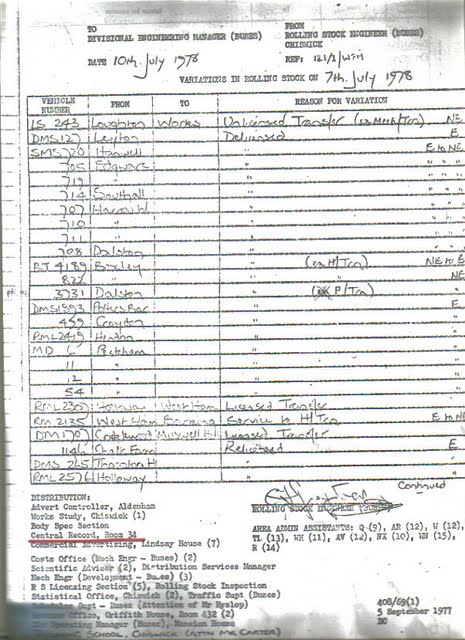 TO FROM
DIVISIONAL ENGINEERING MANAGER (BUSES) ROLLING STOCK ENGINEER (BUSES)
CHISWICK
DATE 10th July 1978 REF: 121/2/
VARIATIONS IN ROLLING STOCK ON 7th July 1978
VEHICLE NUMBER FROM TO REASON FOR VARIATION
LS 243 Loughton Works Unlicensed Transfer NE
DMS 127 Leyton Delicensed E
SMS 720 Hanwell " E to NE
705 Edgware " " " "
719 " " " " "
714 Southall " " " "
707 Harrow W " " " "
710 " " " " "
711 " " " " "
708 Dalston " " " "
RT 4189 Bexley " NE to E
822 " " NE
3731 Dalston " (ex P/Trn) "
DMS 1893 Potters Bar " E
459 Croydon " "
RML 2419 Hendon " "
MD 6 Peckham " "
11 " " "
12 " " "
54 " " "
RML 2305 Holloway West Ham Licensed Transfer
RM 2135 West Ham Service to H/Trn E to NE
DM 1707 Camberwell Muswell Hill Licensed Transfer
1146 Chalk Farm Relicensed E
DMS 265 Thornton H " "
RML 2576 Holloway " "
Continued
DISTRIBUTION:
Advert Controller, Aldenham
Works Study, Chiswick (1)
Body Spec Section
Central Record, Room 34
Commercial Advertising, Lindsay House (7)
Costs Office (Mech Engr - Buses) (2)
Scientific Adviser (2), Distribution Services Manager
Mech Engr (Development - Buses) (3)
R S Licensing Section (5), Rolling Stock Inspection
Statistical Office, Chiswick (2), Traffic Supt (Buses)
Supt - Buses (Attention of Mr Hyslop)
Office, Griffith House, Room 432 (2)
Operating Manager (Buses), Mansion House
SCHOOL, CHISWICK (ATTN MR CARTER)
ROLLING STOCK ENGINEER (BUSES)
AREA ADMIN ASSISTANTS: Q (9), AR (12), W (12),
TL (13), WH (11), AV (12), NX (10), WN (15),
R (14)
408/69(1)
5 September 1977
DC